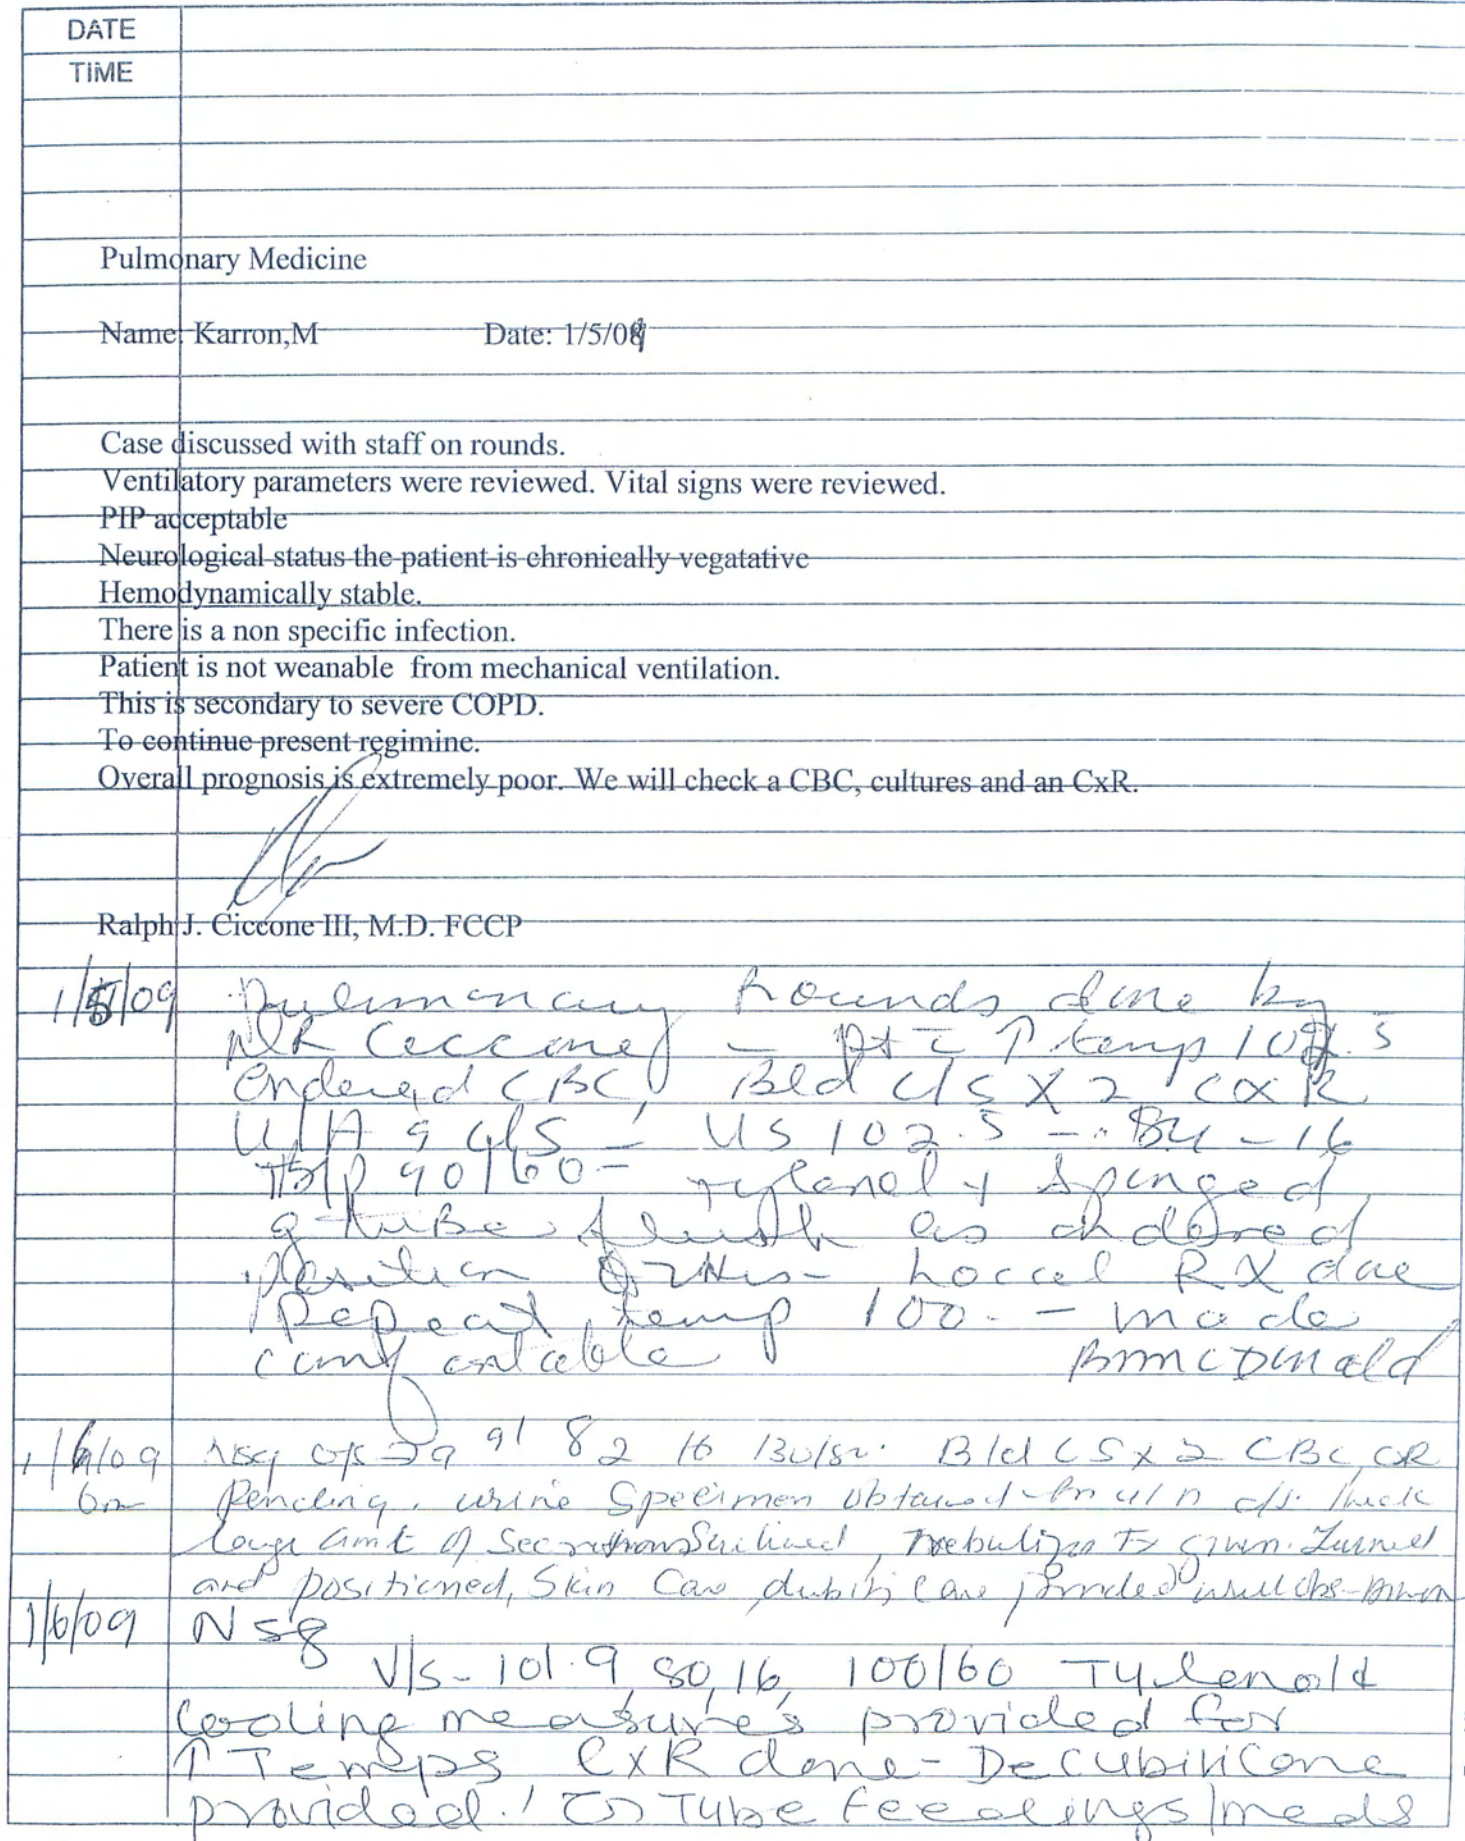 DATE
TIME
Pulmonary Medicine
Name: Karron,M Date: 1/5/09
Case discussed with staff on rounds.
Ventilatory parameters were reviewed. Vital signs were reviewed.
PIP acceptable
Neurological status the patient is chronically vegatative
Hemodynamically stable.
There is a non specific infection.
Patient is not weanable from mechanical ventilation.
This is secondary to severe COPD.
To continue present regimine.
Overall prognosis is extremely poor. We will check a CBC, cultures and an CxR.
Ralph J. Ciccone III, M.D. FCCP
1/5/09 Pulmonary Rounds done by
DR Ciccone - pt c̄ ↑ temp 102.5
Ordered CBC, Bld c/s x 2 CXR
U/A c/s - VS 102.5 - 84 - 16
B/P 90/60 - Tylenol + Sponged
g-tube flush as ordered
position Q 2 Hrs - Local RX due
Repeat temp 100. - made
comfortable BMMcDonald
1/6/09 Nsg 82 16 130/80. Bld CS x 2 CBC, CXR
6 Pending. urine Specimen obtained c/s. thick
large amt of secretions, nebulizer Tx given. Turned
and positioned, Skin Care, care provided will obs-
1/6/09 Nsg
V/s - 101.9, 80, 16, 100/60 Tylenol &
Cooling measures provided for
↑ Temps CxR done - Decubiti Care
provided. Tube feedings/meds